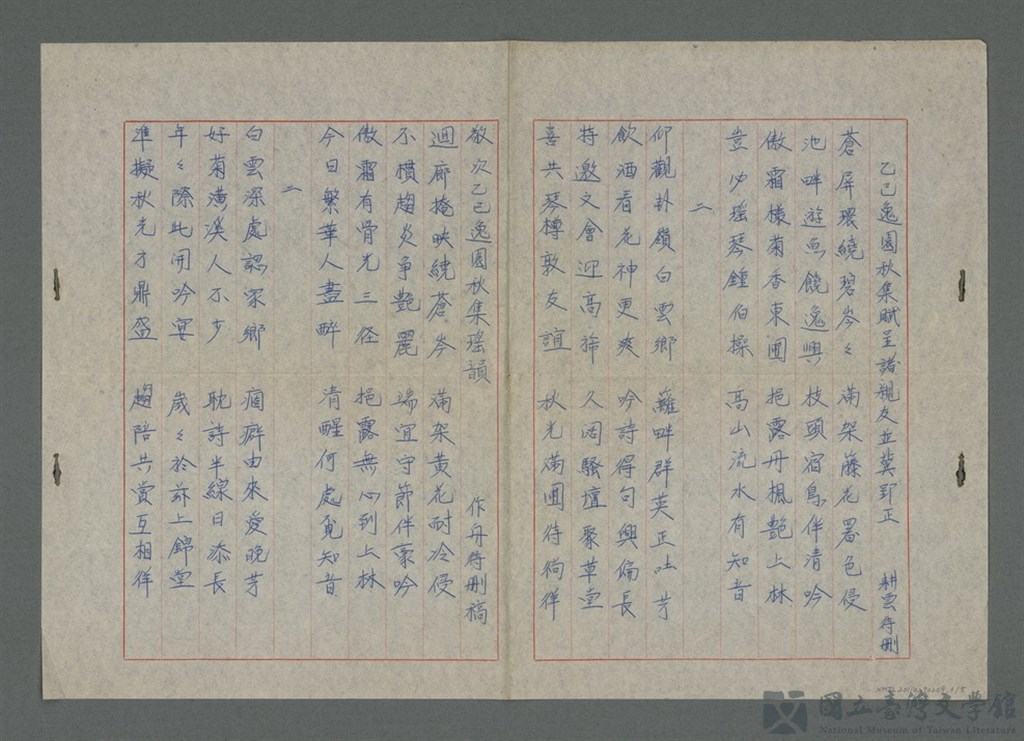 乙已逸園秋集賦呈諸親友並冀郢正　耕雲待刪
蒼屏環繞碧岑々　滿架藤花署色侵
池畔遊魚饒逸興　枝頭宿鳥伴清吟
傲霜樣菊香東圃　挹露丹楓艷上林
豈必瑤琴鍾伯操　高山流水有知音
二
仰觀卦嶺白雲鄉　籬畔群英正吐芳
飲酒看花神更爽　吟詩得句興偏長
特邀文會迎高旆　久闊騷壇聚草堂
喜共琴樽敦友誼　秋光滿圃待徜徉
敬次乙已逸園秋集瑤韻　作舟待刪稿
迴廊掩映繞蒼岑　滿架黃花耐冷侵
不慣趨炎爭艷麗　端宜守節伴豪吟
傲霜有骨光三径　挹露無心到上林
今日繁華人盡醉　清醒何處覓知音
二
白雲深處認家鄉　痼癖由來愛晚芳
好菊濱溪人不少　耽詩半線日添長
年々際此開吟宴　歲々於茲上錦堂
準擬秋光才鼎盛　趨陪共賞互相徉
國立臺灣文學館
National Museum of Taiwan Literature